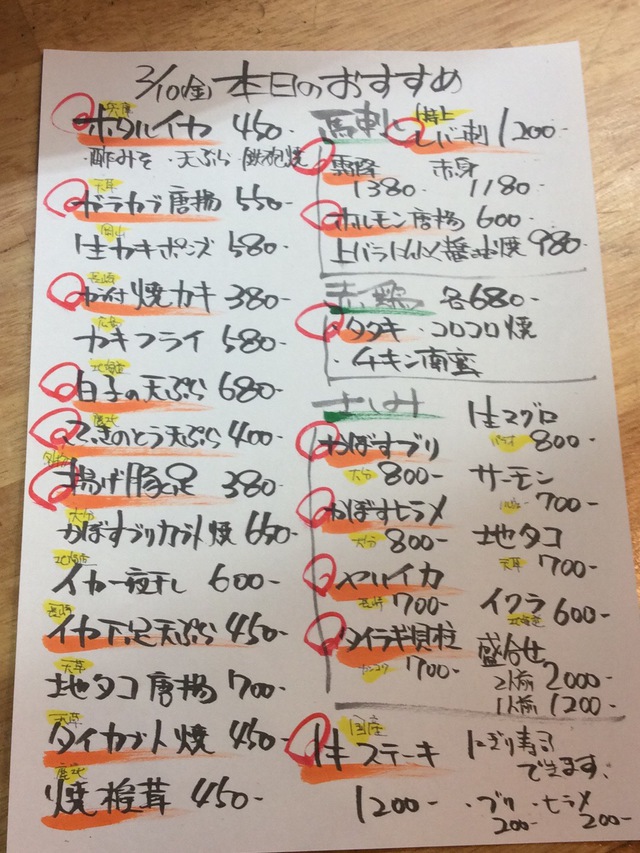 3/10(金) 本日のおすすめ
兵庫
ホタルイカ 450-
・酢みそ ・天ぷら ・鉄砲焼
天草
ガラカブ唐揚 550-
岡山
生カキポンズ 580-
長崎
カラ付焼カキ 380-
広島
カキフライ 580-
北海道
白子の天ぷら 680-
鹿北
ふきのとう天ぷら 400-
揚げ豚足 380-
大分
かぼすブリカブト焼 650-
北海道
イカ一夜干し 600-
長崎
イカ下足天ぷら 450-
天草
地タコ唐揚 700-
天草
タイカブト焼 450-
鹿北
焼椎茸 450-
馬刺し
特上
レバー刺 1200-
霜降 赤身
1380- 1180-
ホルモン唐揚 600-
上バラにんにく醤油焼 980-
赤鶏 各680-
・タタキ ・コロコロ焼
・チキン南蛮
さしみ
かぼすブリ
大分 800-
かぼすヒラメ
大分 800-
ヤリイカ
長崎 700-
タイラギ貝柱
700-
生マグロ
800-
サーモン
700-
地タコ
天草 700-
イクラ
北海道 600-
盛合せ
2人前 2000-
1人前 1200-
国産
牛ステーキ
1200-
にぎり寿司
できます。
・ブリ ・ヒラメ
200- 200-